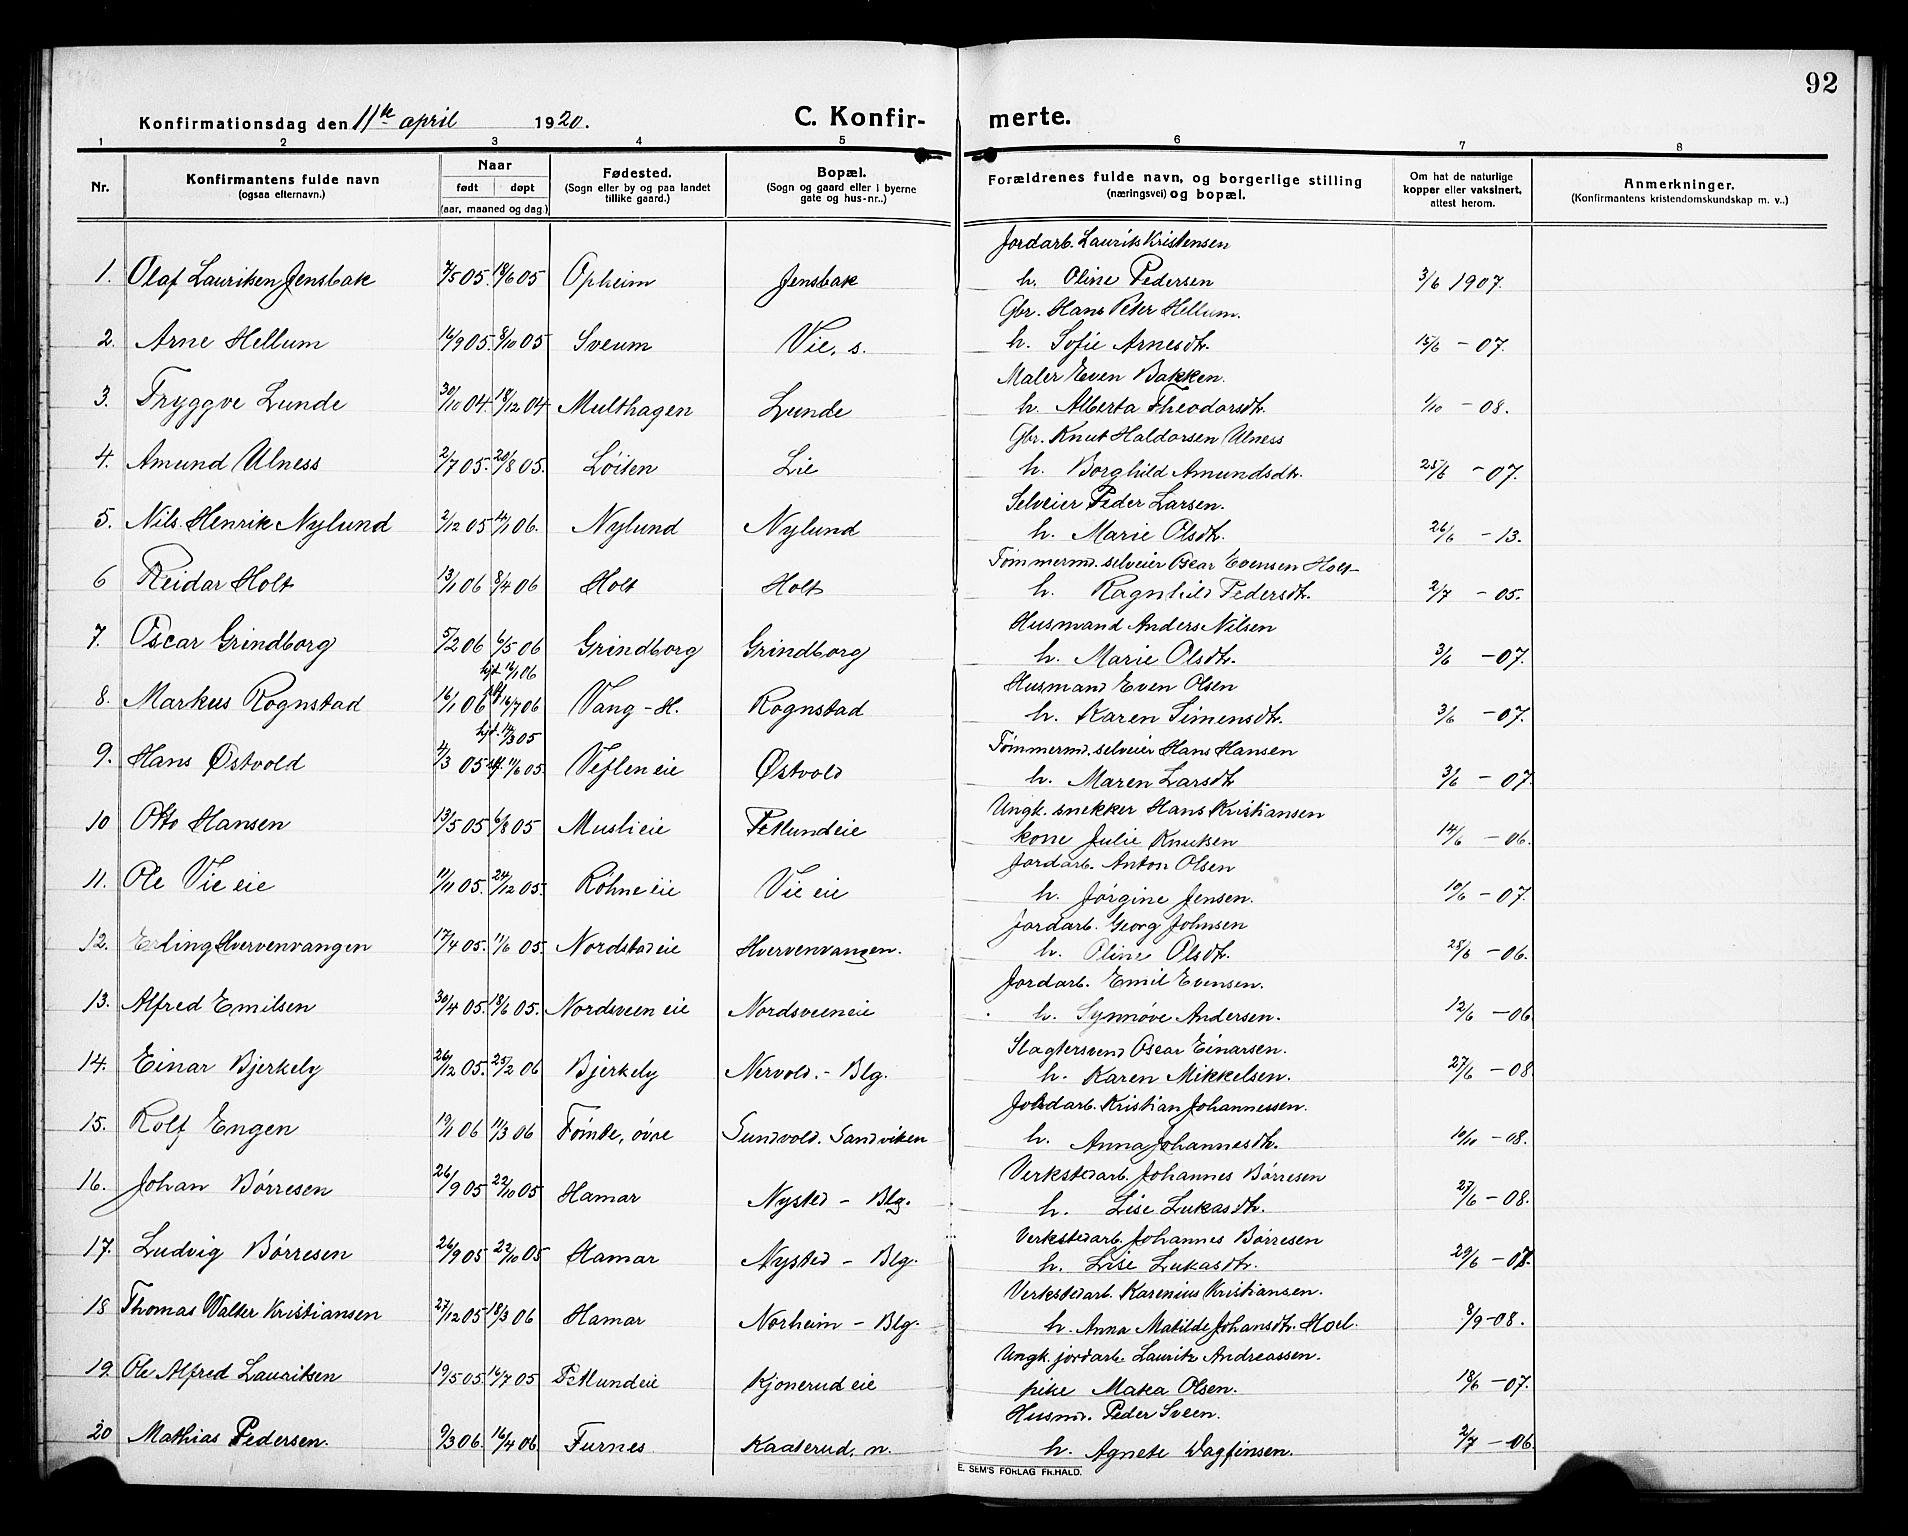 92
Konfirmationsdag den 11te april 1920.
C. Konfirmerte.
1 2 3 4 5 6 7 8
Nr. Konfirmantens fulde navn (ogsaa efternavn.) Naar født døpt (aar, maaned og dag.) Fødested. (Sogn eller by og paa landet tillike gaard.) Bopæl. (Sogn og gaard eller i byerne gate og hus-nr..) Forældrenes fulde navn, og borgerlige stilling (næringsvei) og bopæl. Om hat de naturlige kopper eller vaksinert, attest herom. Anmerkninger. (Konfirmantens kristendomskundskap m. v..)
Jordarb. Laurits Kristensen
1. Olaf Lauritsen Jensbak 7/5 05. 18/6 05 Opheim Jensbak h. Oline Pedersen 3/6 1907.
Gbr. Hans Peter Hellum.
2. Arne Hellum 16/9 05. 8/10 05 Sveum Vie, s. h. Sofie Arnesdtr. 15/6 - 07.
Maler Even Bakken.
3. Tryggve Lunde 30/10 04. 18/12 04 Multhagen Lunde h. Alberta Theodorsdt. 1/10 - 08.
Gbr. Knut Haldorsen Ulness
4. Amund Ulness 2/7 05. 20/8 05. Løiten Lie h. Borghild Amundsdtr. 25/6 - 07.
Selveier Peder Larsen.
5. Nils Henrik Nylund 2/12 05 14/1 06. Nylund Nylund h. Marie Olsdtr. 26/6 - 13.
Tømmermd. selveier Oscar Evensen Holt
6 Reidar Holt 13/1 06 8/4 06 Holt Holt h. Ragnhild Pedersdt. 2/7 - 05.
Husmand Anders Nilsen
7. Oscar Grindborg 5/2 06 6/5 06 Grindborg Grindborg h. Marie Olsdtr. 3/6 - 07.
hjd. 17/1 06 Husmand Even Olsen
8. Markus Rognstad 16/1 06 16/7 06 Vang - H. Rognstad h. Karen Simensdtr. 3/6 - 07.
hjd. 14/3 05 Tømmermd. selveier Hans Hansen
9. Hans Østvold 4/3 05 11/6 05. Veflen eie Østvold h. Maren Larsdtr. 3/6 - 07.
Ungk. snekker Hans Kristiansen
10 Otto Hansen 13/5 05 6/8 05 Musli eie Tetlund eie kone Julie Knutsen 14/6 - 06.
Jordarb. Anton Olsen
11. Ole Vie eie 11/11 05. 24/12 05. Røhne eie Vie eie h. Jørgine Jensen. 10/6 - 07.
Jordarb. Georg Johnsen
12. Erling Hvervenvangen 17/4 05. 11/6 05. Nordstad eie Hvervenvangen. h. Oline Olsdtr. 25/6 - 06.
Jordarb. Emil Evensen.
13. Alfred Emilsen 30/4 05. 18/6 05. Nordsveen eie Nordsveen eie h. Synnøve Andersen. 12/6 - 06
Slagtersvend Oscar Einarsen.
14. Einar Bjerkely 26/12 05. 25/2 06 Bjerkely Nervold. - Blg. h. Karen Mikkelsen. 27/6 - 08
Jordarb. Kristian Johannessen.
15. Rolf Engen 19/1 06 11/3 06 Tomte, øvre Sundvold. Sandviken h. Anna Johannesdtr. 10/10 - 08.
Verkstedarb. Johannes Børresen
16. Johan Børresen 26/9 05 22/10 05 Hamar Nysted - Blg. h. Lise Lukasdtr. 27/6 - 08.
Verkstedarb. Johannes Børresen
17. Ludvig Børresen 26/9 05 22/10 05 Hamar Nysted - Blg. h. Lise Lukasdtr. 29/6 - 08.
Verkstedarb. Karenius Kristiansen.
18 Thomas Walter Kristiansen 27/12 05 18/3 06 Hamar Norheim - Blg. h. Anna Matilde Johansdtr. Hoel. 8/9 - 08.
Ungk. jordarb. Lauritz Andreassen.
19. Ole Alfred Lauritsen 19/5 05 16/7 05 Tetlund eie Kjonerud eie pike Maka Olsen. 18/6 - 07.
Husmd. Peder Sveen.
20 Mathias Pedersen. 9/3 06. 16/4 06 Furnes Kaaterud, n. h. Agnete Dagfinsen. 2/7 - 06
E. SEM'S FORLAG FR.HALD.